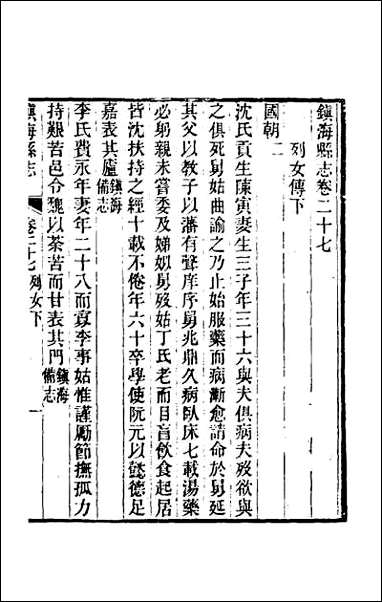 鎮海縣志卷二十七
列女傳下
國朝二
沈氏貢生陳寅妻生三子年三十六與夫俱病夫歿欲與
之俱死舅姑曲諭之乃止始服藥而病漸愈請命於舅延
其父以教子以藩有聲庠序舅兆鼎久病臥床七載湯藥
必躬親未嘗委及娣姒舅歿姑丁氏老而目盲飲食起居
皆沈扶持之經十載不倦年六十卒學使阮元以懿德足
嘉表其廬鎮海備志
李氏費永年妻年二十八而寡李事姑惟謹勵節撫孤力
持艱苦邑令魏以荼苦而甘表其門鎮海備志
鎮海縣志 卷二十七 列女下 一